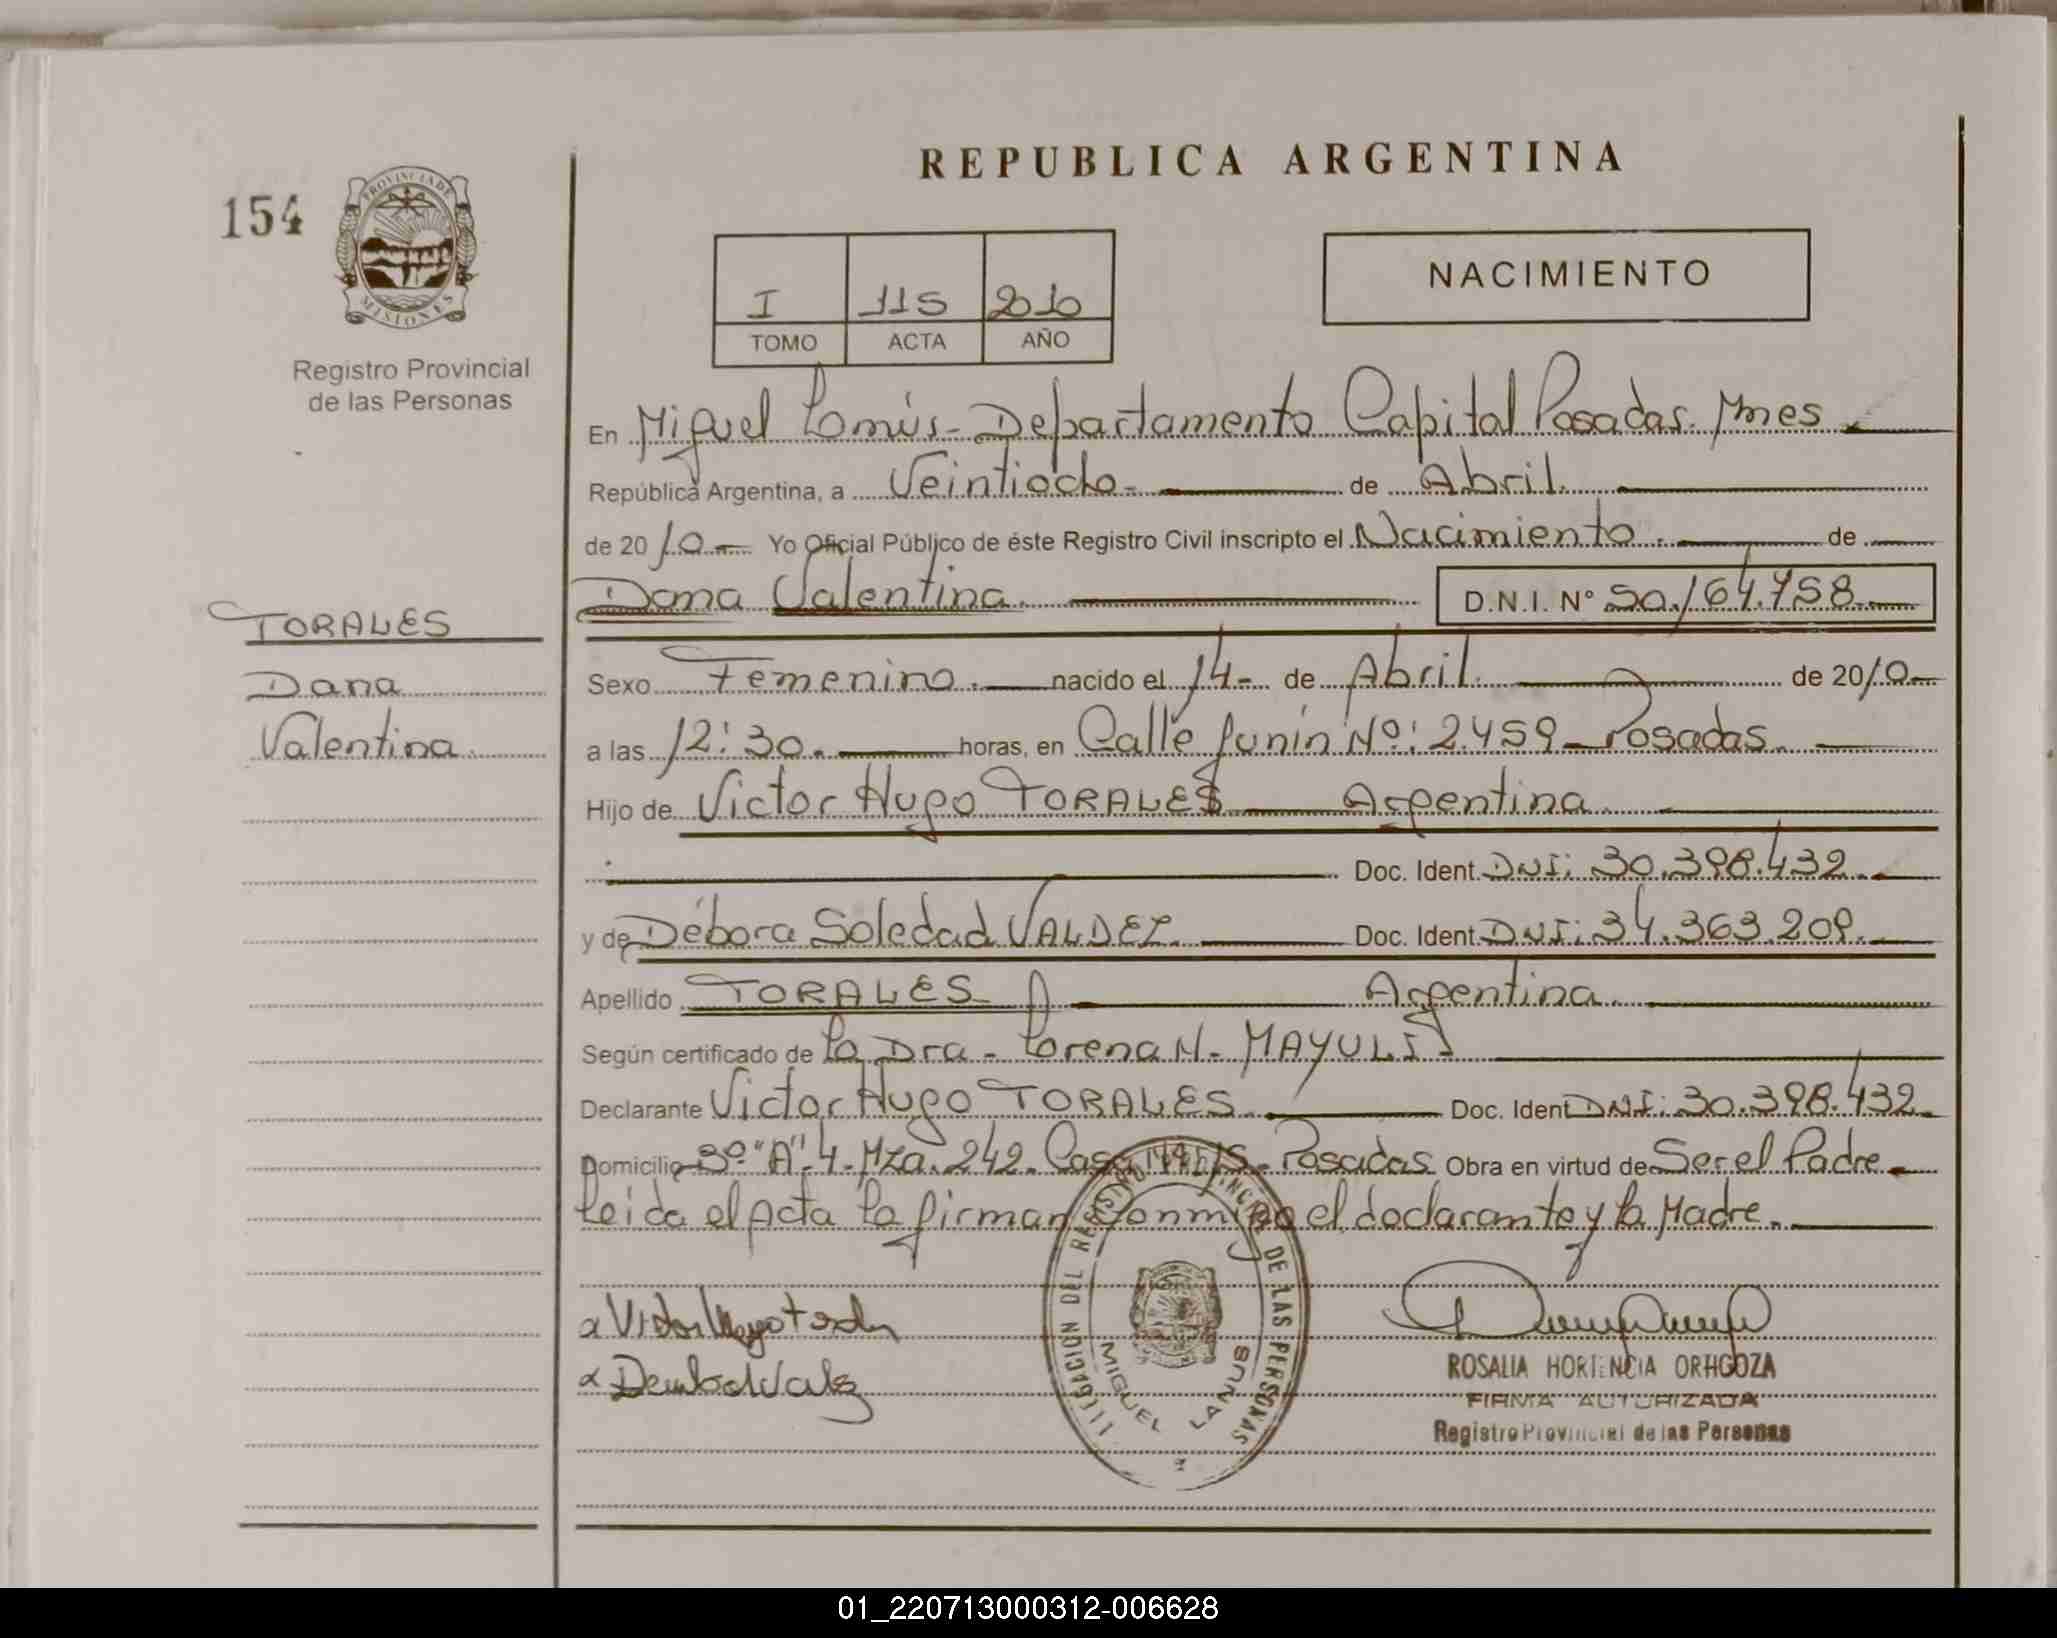 REPUBLICA ARGENTINA
154
PROVINCIA DE
MISIONES
Registro Provincial
de las Personas
NACIMIENTO
I 115 2010
TOMO ACTA AÑO
En Miguel Lanús - Departamento Capital Posadas. Mnes
República Argentina, a Veintiocho - de Abril.
de 2010 - Yo Oficial Público de éste Registro Civil inscripto el Nacimiento. de
Dana Valentina. D.N.I. Nº 50.164.758
TORALES
Dana
Valentina.
Sexo Femenino. nacido el 14 - de Abril. de 2010
a las 12:30. horas, en Calle Junín Nº: 2.459 - Posadas.
Hijo de Victor Hugo TORALES Argentina
Doc. Ident. DNI: 30.398.432
y de Débora Soledad VALDEZ. Doc. Ident. DNI: 34.363.209.
Apellido TORALES Argentina.
Según certificado de La Dra - Lorena N - MAYULI
Declarante Victor Hugo TORALES. Doc. Ident DNI: 30.398.432
Domicilio 3º "A" 4. Mza. 242. Casa Posadas Obra en virtud de Ser el Padre
Leida el Acta la firman Conmigo el declarante y la Madre.
DELEGACION DEL REGISTRO PROVINCIAL DE LAS PERSONAS
MIGUEL LANUS
ROSALIA HORTENCIA ORTIGOZA
FIRMA AUTORIZADA
Registro Provincial de las Personas
01_220713000312-006628